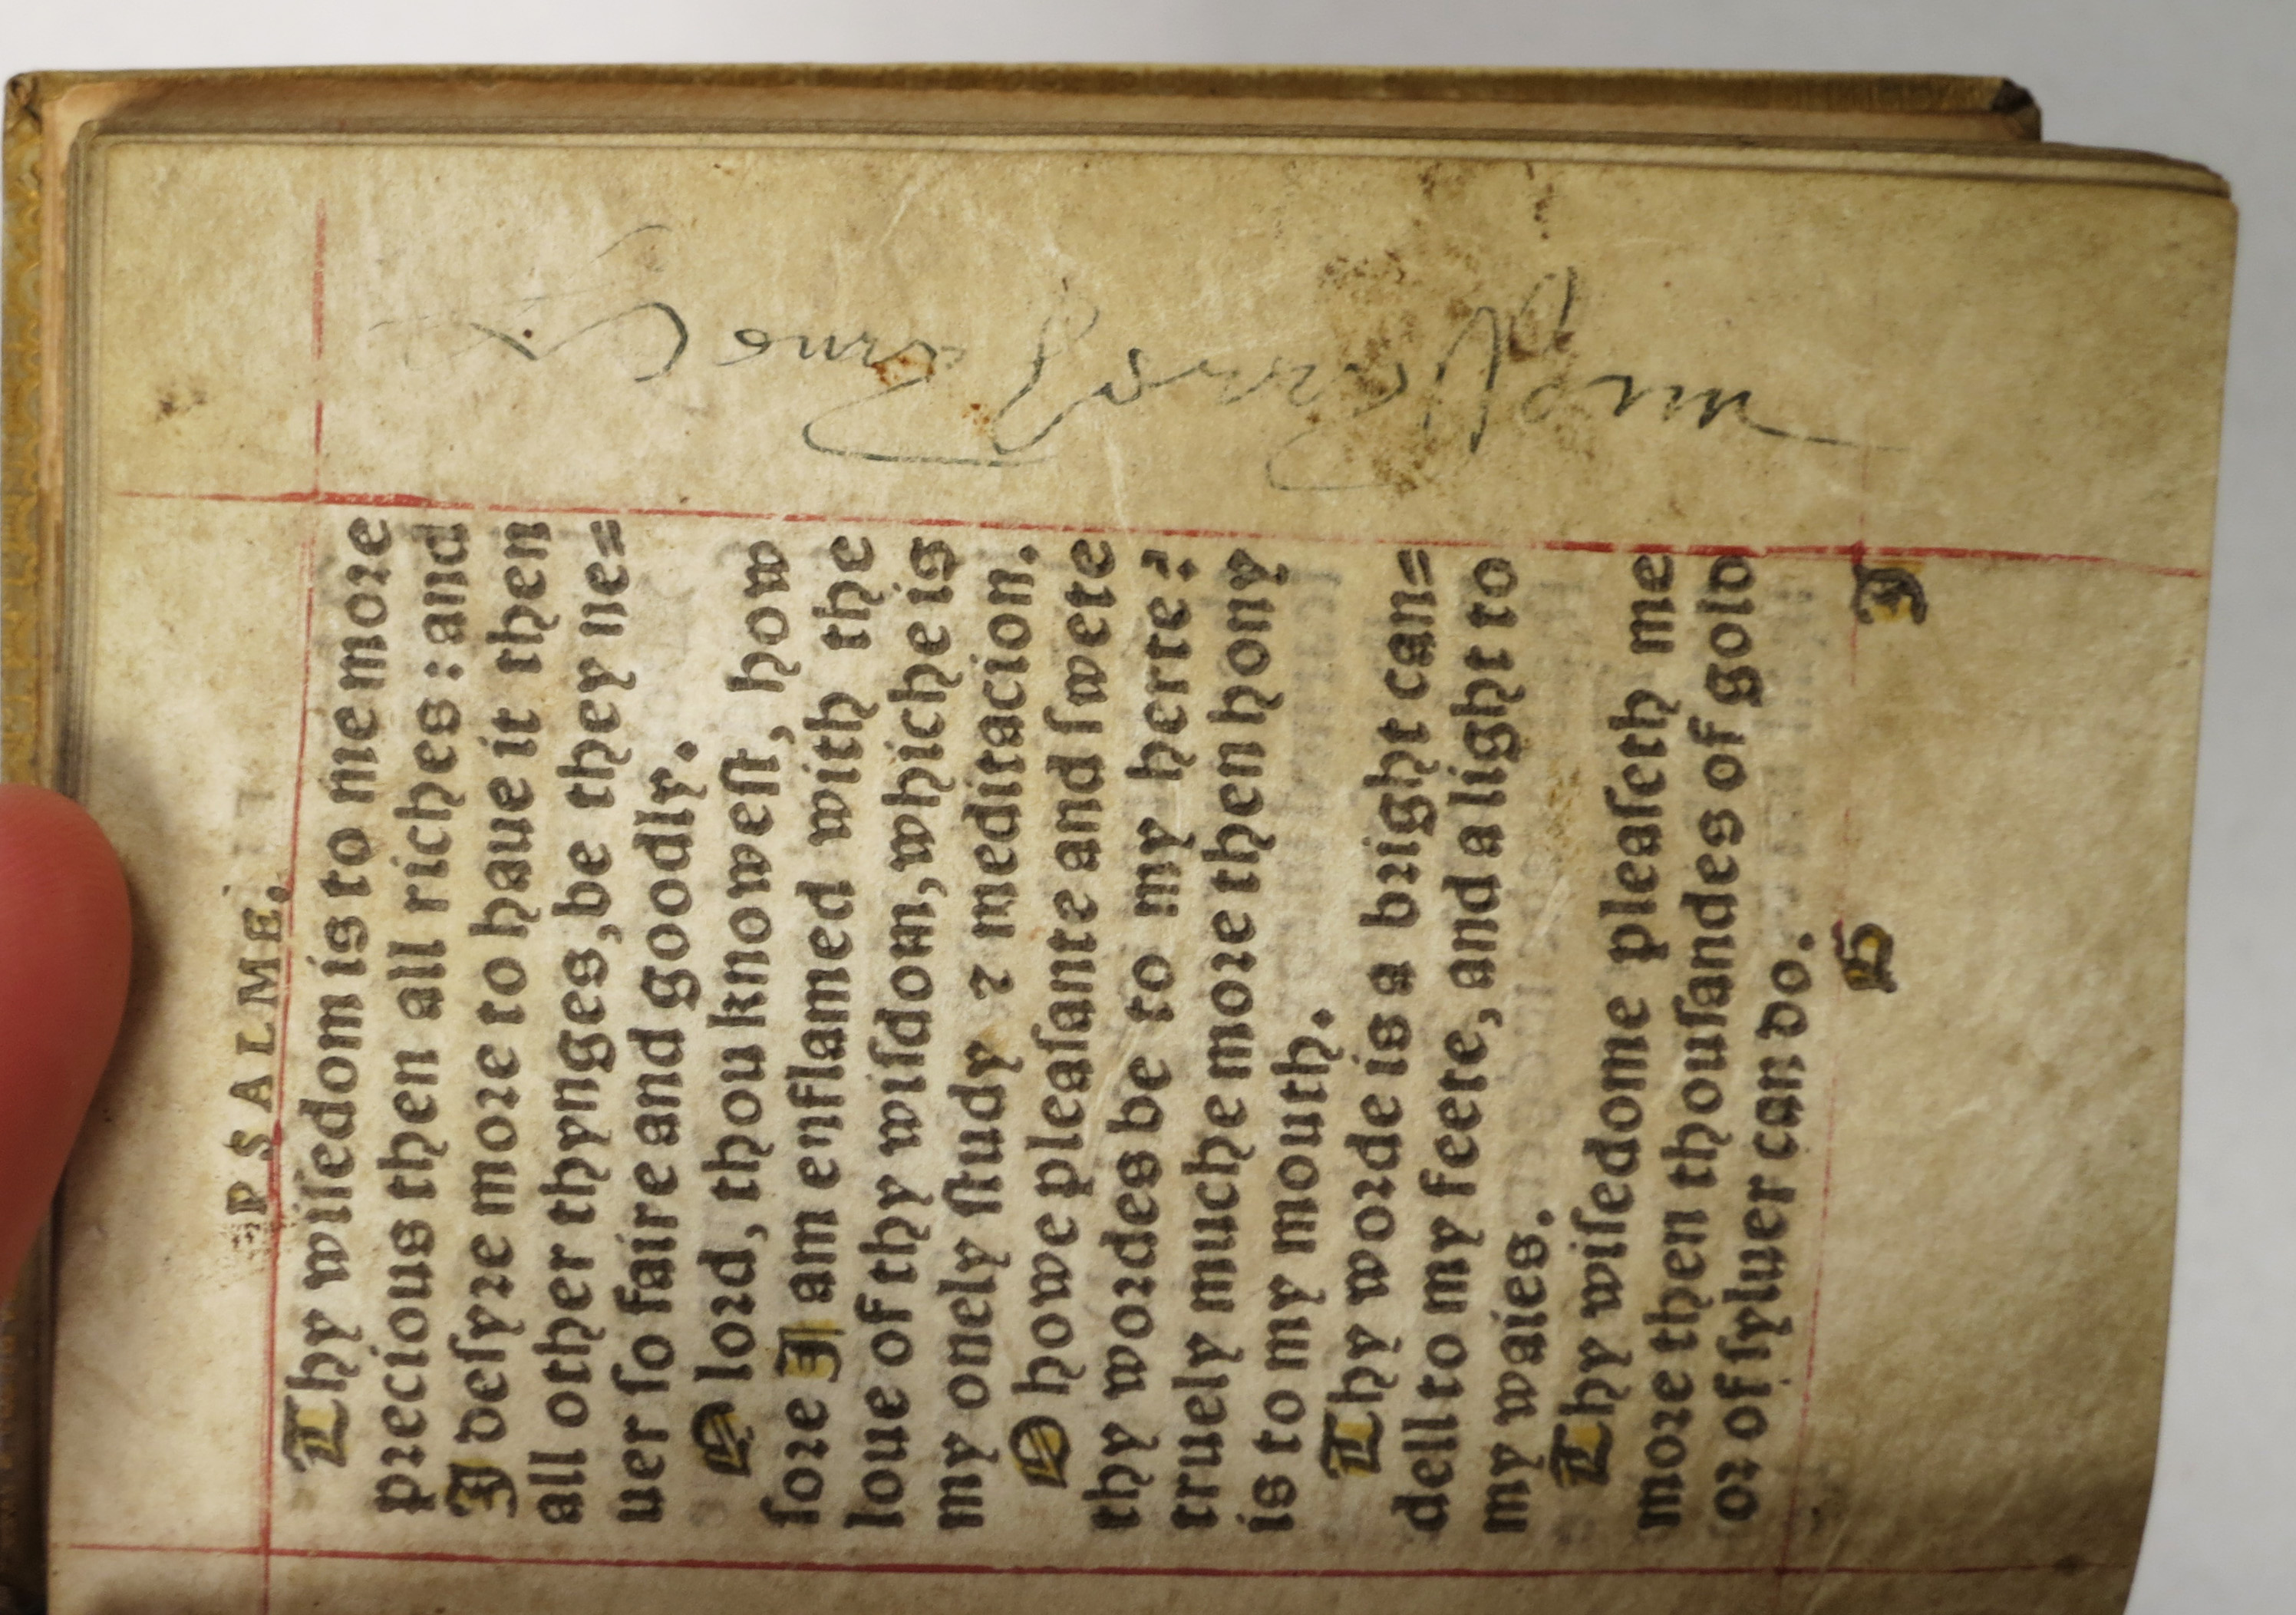 PSALME.
Thy wiſedom is to me more
precious then all riches: and
I deſyre more to haue it then
all other thynges, be they ne=
uer ſo faire and goodly.
O lord, thou knoweſt, how
ſore I am enflamed with the
loue of thy wiſdom, whiche is
my onely ſtudy ⁊ meditacion.
O howe pleaſante and ſwete
thy wordes be to my herte:
truely muche more then hony
is to my mouth.
Thy worde is a bright can=
dell to my feete, and a light to
my waies.
Thy wiſedome pleaſeth me
more then thouſandes of gold
or of ſyluer can do.
H I